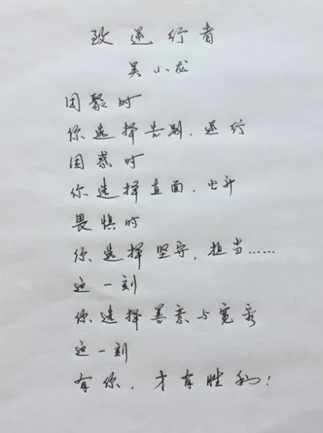 致逆行者
吴小龙
团聚时
你选择告别，逆行
困惑时
你选择直面，出升
畏惧时
你选择坚守，担当……
这一刻
你选择善意与宽容
这一刻
有你，才有胜利！